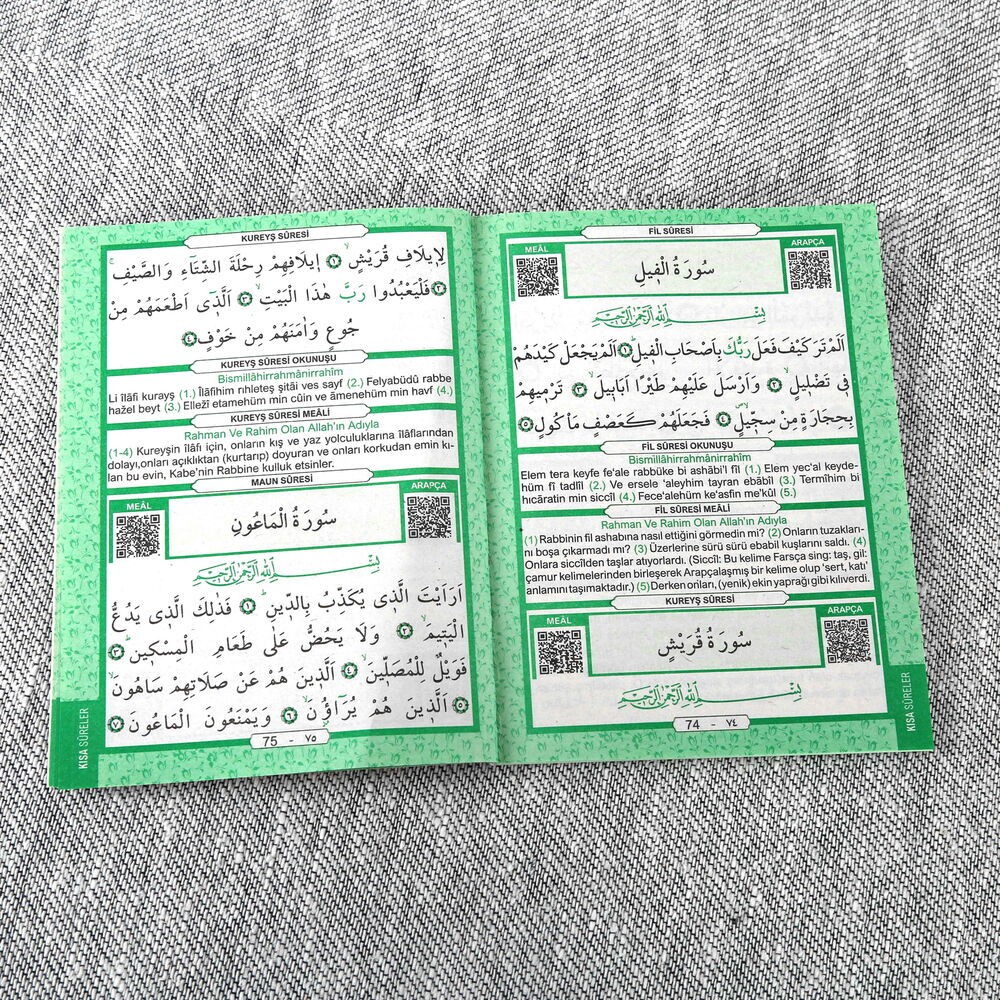 FİL SÛRESİ
MEÂL
ARAPÇA
سُورَةُ الْفِيلِ
بِسْمِ اللّٰهِ الرَّحْمٰنِ الرَّحِيمِ
اَلَمْ تَرَ كَيْفَ فَعَلَ رَبُّكَ بِاَصْحَابِ الْفِيلِ ﴿١﴾ اَلَمْ يَجْعَلْ كَيْدَهُمْ
فِي تَضْلِيلٍ ﴿٢﴾ وَاَرْسَلَ عَلَيْهِمْ طَيْرًا اَبَابِيلَ ﴿٣﴾ تَرْمِيهِمْ
بِحِجَارَةٍ مِنْ سِجِّيلٍ ﴿٤﴾ فَجَعَلَهُمْ كَعَصْفٍ مَأْكُولٍ ﴿٥﴾
FİL SÛRESİ OKUNUŞU
Bismillâhirrahmânirrahîm
Elem tera keyfe fe'ale rabbüke bi ashâbi'l fîl (1.) Elem yec'al keyde-
hüm fî tadlîl (2.) Ve ersele 'aleyhim tayran ebâbîl (3.) Termîhim bi
hıcâratin min siccîl (4.) Fece'alehüm ke'asfin me'kûl (5.)
FİL SÛRESİ MEÂLİ
Rahman Ve Rahim Olan Allah'ın Adıyla
(1) Rabbinin fil ashabına nasıl ettiğini görmedin mi? (2) Onların tuzakları-
nı boşa çıkarmadı mı? (3) Üzerlerine sürü sürü ebabil kuşlarını saldı. (4)
Onlara siccîlden taşlar atıyorlardı. (Siccîl: Bu kelime Farsça sing: taş, gil:
çamur kelimelerinden birleşerek Arapçalaşmış bir kelime olup 'sert, katı'
anlamını taşımaktadır.) (5) Derken onları, (yenik) ekin yaprağı gibi kılıverdi.
KUREYŞ SÛRESİ
MEÂL
ARAPÇA
سُورَةُ قُرَيْشٍ
بِسْمِ اللّٰهِ الرَّحْمٰنِ الرَّحِيمِ
74 - ٧٤
KISA SÛRELER
KUREYŞ SÛRESİ
لِاِيلَافِ قُرَيْشٍ ﴿١﴾ اِيلَافِهِمْ رِحْلَةَ الشِّتَاءِ وَالصَّيْفِ
﴿٢﴾ فَلْيَعْبُدُوا رَبَّ هٰذَا الْبَيْتِ ﴿٣﴾ اَلَّذِي اَطْعَمَهُمْ مِنْ
جُوعٍ وَاٰمَنَهُمْ مِنْ خَوْفٍ ﴿٤﴾
KUREYŞ SÛRESİ OKUNUŞU
Bismillâhirrahmânirrahîm
Li îlâfi kurayş (1.) Îlâfihim rıhleteş şitâi ves sayf (2.) Felyabüdû rabbe
hażel beyt (3.) Ellezî etamehüm min cûin ve âmenehüm min havf (4.)
KUREYŞ SÛRESİ MEÂLİ
Rahman Ve Rahim Olan Allah'ın Adıyla
(1-4) Kureyşin îlâfı için, onların kış ve yaz yolculuklarına îlâflarından
dolayı,onları açıklıktan (kurtarıp) doyuran ve onları korkudan emin kı-
lan bu evin, Kabe'nin Rabbine kulluk etsinler.
MAUN SÛRESİ
MEÂL
ARAPÇA
سُورَةُ الْمَاعُونِ
بِسْمِ اللّٰهِ الرَّحْمٰنِ الرَّحِيمِ
اَرَاَيْتَ الَّذِي يُكَذِّبُ بِالدِّينِ ﴿١﴾ فَذٰلِكَ الَّذِي يَدُعُّ
الْيَتِيمَ ﴿٢﴾ وَلَا يَحُضُّ عَلٰى طَعَامِ الْمِسْكِينِ ﴿٣﴾
فَوَيْلٌ لِلْمُصَلِّينَ ﴿٤﴾ اَلَّذِينَ هُمْ عَنْ صَلَاتِهِمْ سَاهُونَ
﴿٥﴾ اَلَّذِينَ هُمْ يُرَاؤُنَ ﴿٦﴾ وَيَمْنَعُونَ الْمَاعُونَ ﴿٧﴾
75 - ٧٥
KISA SÛRELER